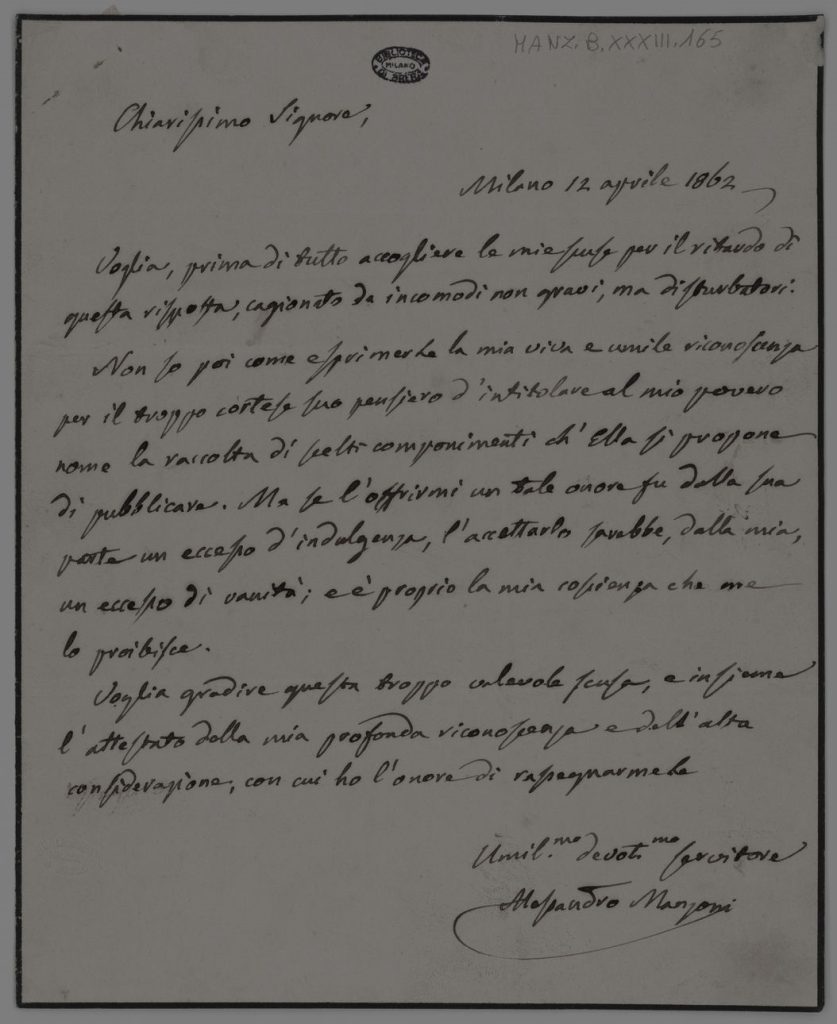 MANZ. B. XXXIII. 165
BIBLIOTECA
MILANO
DI BRERA
Chiarissimo Signore,
Milano 12 aprile 1862
Voglia, prima di tutto accogliere le mie scuse per il ritardo di
questa risposta, cagionato da incomodi non gravi, ma disturbatori.
Non so poi come esprimerLe la mia viva e umile riconoscenza
per il troppo cortese suo pensiero d'intitolare al mio povero
nome la raccolta di scelti componimenti ch'Ella si propone
di pubblicare. Ma se l'offrirmi un tale onore fu dalla sua
parte un eccesso d'indulgenza, l'accettarlo sarebbe, dalla mia,
un eccesso di vanità; e è proprio la mia coscienza che me
lo proibisce.
Voglia gradire questa troppo valevole scusa, e insieme
l'attestato della mia profonda riconoscenza e dell'alta
considerazione, con cui ho l'onore di rassegnarmele
Umil.mo devot.mo servitore
Alessandro Manzoni